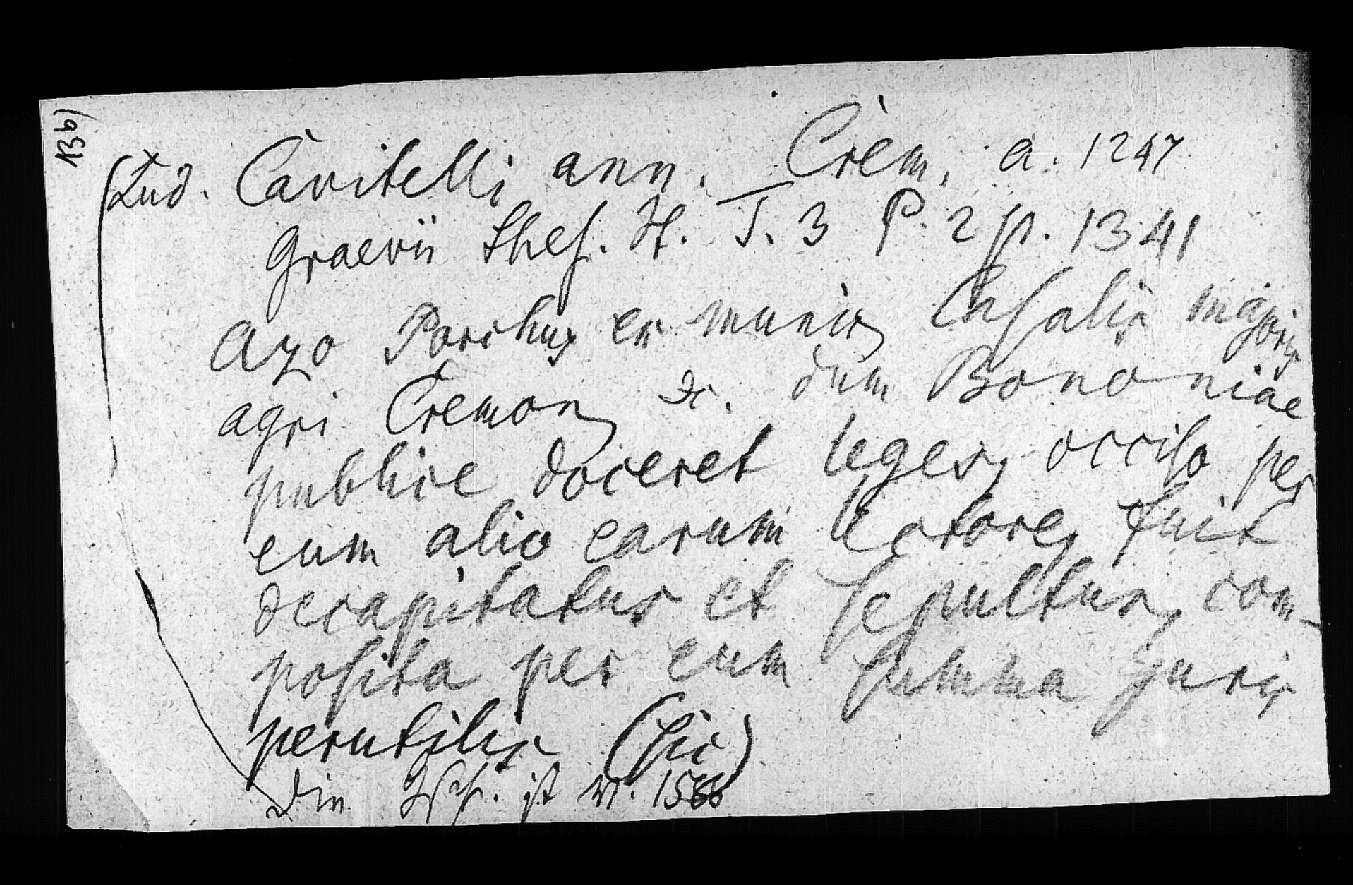 13b)
(Lud. Cavitelli ann. Crem. a. 1247
Graevii Thes. It. T. 3 P. 2 p. 1341
Azo Porchus ex Casalis majoris
agri Cremon. &c. dum Bononiae
publice doceret leges, occiso per
eum alio earum lectore, fuit
decapitatus et sepultus, com-
posita per eum summa juris
perutilis (sic)
Die ist v. 1588